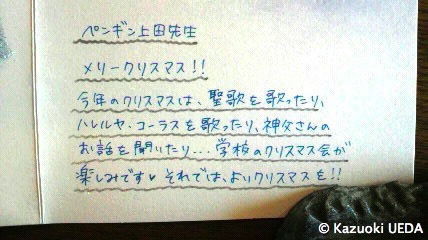 ペンギン上田先生
メリークリスマス!!
今年のクリスマスは、聖歌を歌ったり、
ハレルヤ・コーラスを歌ったり、神父さんの
お話を聞いたり...学校のクリスマス会が
楽しみです♥ それでは、よいクリスマスを!!
© Kazuoki UEDA